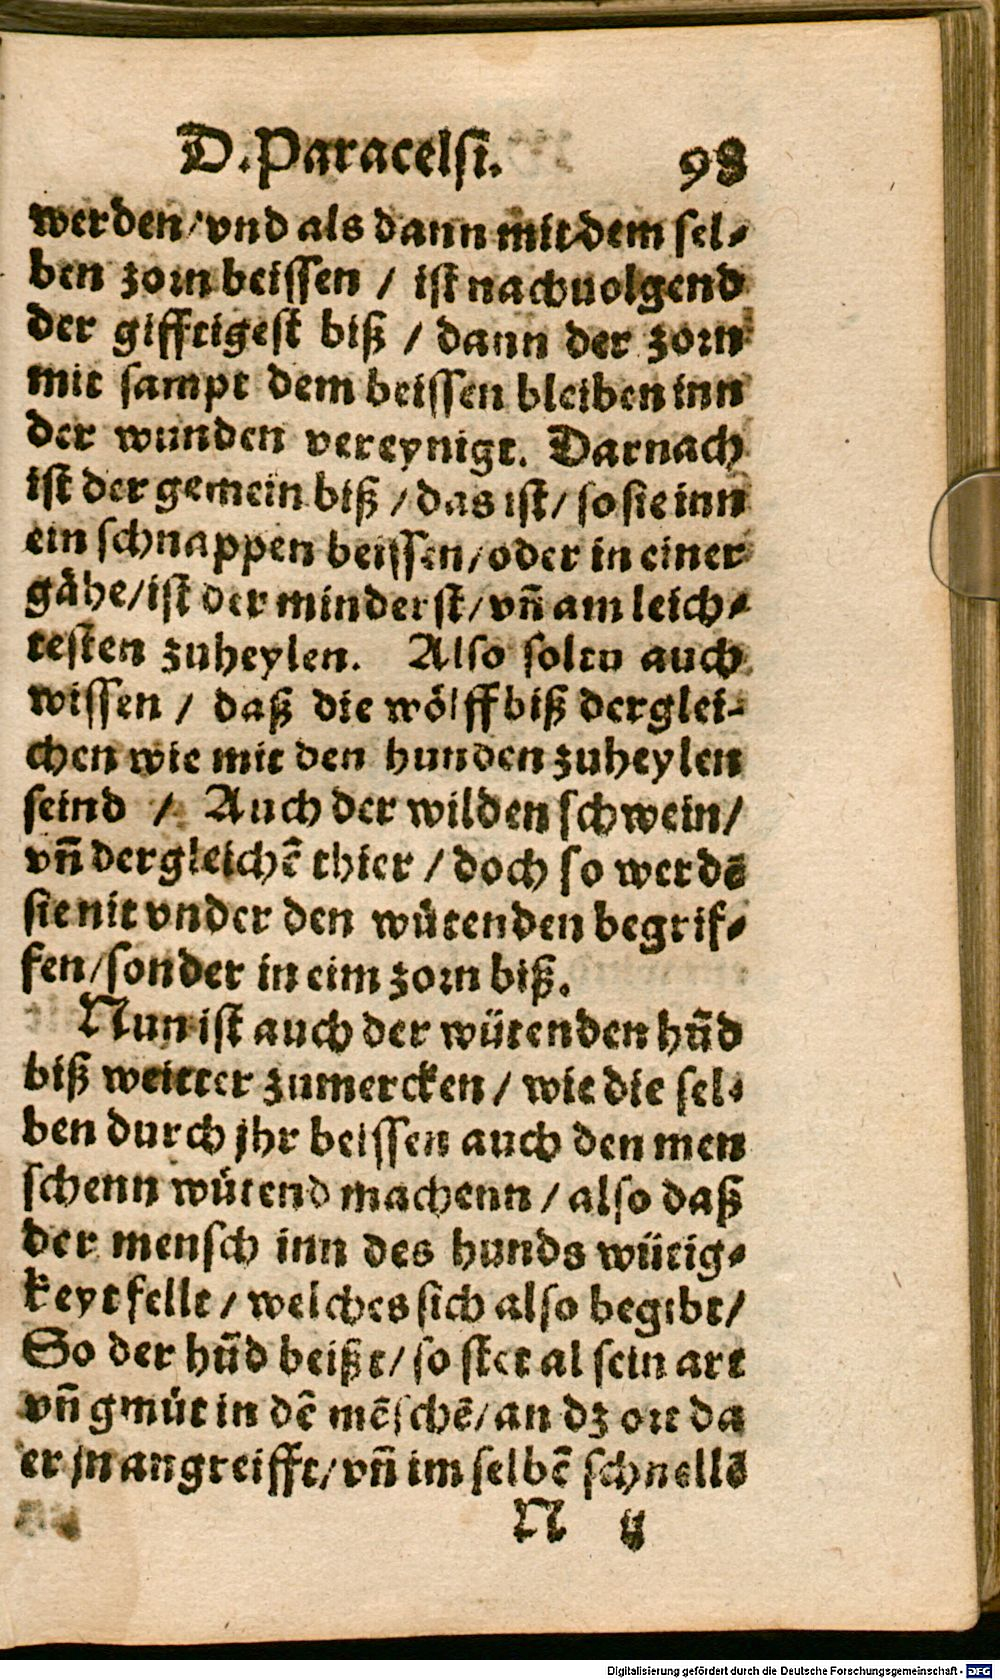 D. Paracelsi. 98
werden/vnd als dann mit dem sel-
ben zorn beissen / ist nachuolgend
der gifftigest biß / dann der zorn
mit sampt dem beissen bleiben inn
der wunden vereynigt. Darnach
ist der gemein biß / das ist / so sie inn
ein schnappen beissen/oder in einer
gähe/ist der minderst/vñ am leich-
testen zuheylen. Also soltu auch
wissen / daß die wölff biß derglei-
chen wie mit den hunden zuheylen
seind / Auch der wilden schwein/
vñ dergleichẽ thier / doch so werdẽ
sie nit vnder den wütenden begrif-
fen/sonder in eim zorn biß.
Nun ist auch der wütenden hũd
biß weitter zumercken / wie die sel-
ben durch jhr beissen auch den men
schenn wütend machenn / also daß
der mensch inn des hunds wütig-
keyt fellt / welches sich also begibt/
So der hũd beißt/ so stet al sein art
vñ gmüt in dẽ mẽschẽ/an dz ort da
er jn angreifft/vñ im selbẽ schnellẽ
N ij
Digitalisierung gefördert durch die Deutsche Forschungsgemeinschaft - DFG